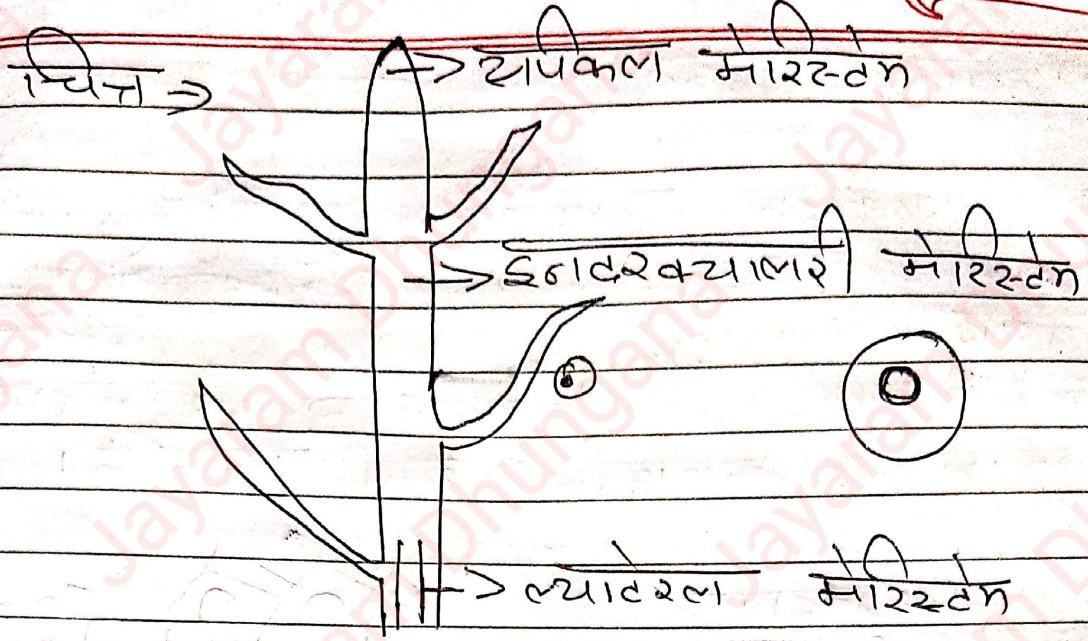 चित्र →
→ यापिकल मेरिस्टेम
→ इनटरक्यालरी मेरिस्टेम
→ ल्याटेरल मेरिस्टेम
Jayaram Dhungana